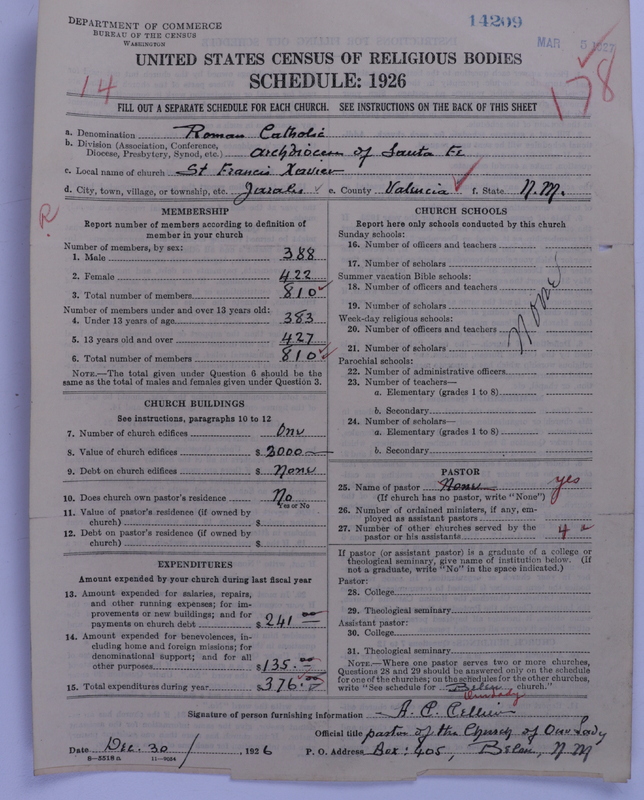 DEPARTMENT OF COMMERCE
BUREAU OF THE CENSUS
WASHINGTON
14209
MAR 5 1927
UNITED STATES CENSUS OF RELIGIOUS BODIES
SCHEDULE: 1926
14
178
FILL OUT A SEPARATE SCHEDULE FOR EACH CHURCH. SEE INSTRUCTIONS ON THE BACK OF THIS SHEET
a. Denomination Roman Catholic
b. Division (Association, Conference, Diocese, Presbytery, Synod, etc.) Archdiocese of Santa Fe
c. Local name of church St Francis Xavier
d. City, town, village, or township, etc. Jarales e. County Valencia f. State N.M.
R
MEMBERSHIP
Report number of members according to definition of
member in your church
Number of members, by sex:
1. Male 388
2. Female 422
3. Total number of members 810
Number of members under and over 13 years old:
4. Under 13 years of age 383
5. 13 years old and over 427
6. Total number of members 810
NOTE.—The total given under Question 6 should be the
same as the total of males and females given under Question 3.
CHURCH BUILDINGS
See instructions, paragraphs 10 to 12
7. Number of church edifices One
8. Value of church edifices $ 2000
9. Debt on church edifices $ None
10. Does church own pastor's residence No
Yes or No
11. Value of pastor's residence (if owned by
church) $
12. Debt on pastor's residence (if owned by
church) $
EXPENDITURES
Amount expended by your church during last fiscal year
13. Amount expended for salaries, repairs,
and other running expenses; for im-
provements or new buildings; and for
payments on church debt $ 241.00
14. Amount expended for benevolences, in-
cluding home and foreign missions; for
denominational support; and for all
other purposes $ 135.00
15. Total expenditures during year $ 376.00
CHURCH SCHOOLS
Report here only schools conducted by this church
Sunday schools:
16. Number of officers and teachers
17. Number of scholars
Summer vacation Bible schools:
18. Number of officers and teachers
19. Number of scholars
None
Week-day religious schools:
20. Number of officers and teachers
21. Number of scholars
Parochial schools:
22. Number of administrative officers
23. Number of teachers—
a. Elementary (grades 1 to 8)
b. Secondary
24. Number of scholars—
a. Elementary (grades 1 to 8)
b. Secondary
PASTOR
25. Name of pastor None yes
(If church has no pastor, write "None")
26. Number of ordained ministers, if any, em-
ployed as assistant pastors
27. Number of other churches served by the
pastor or his assistants 4
If pastor (or assistant pastor) is a graduate of a college or
theological seminary, give name of institution below. (If
not a graduate, write "No" in the space indicated.)
Pastor:
28. College
29. Theological seminary
Assistant pastor:
30. College
31. Theological seminary
NOTE.—Where one pastor serves two or more churches,
Questions 28 and 29 should be answered only on the schedule
for one of the churches; on the schedules for the other churches,
write "See schedule for Belen church."
Our Lady
Signature of person furnishing information A. C. Cellier
Official title pastor of the Church of Our Lady
Date Dec. 30, 1926 P. O. Address Box: 405, Belen, N M
8—5518 a 11—9054